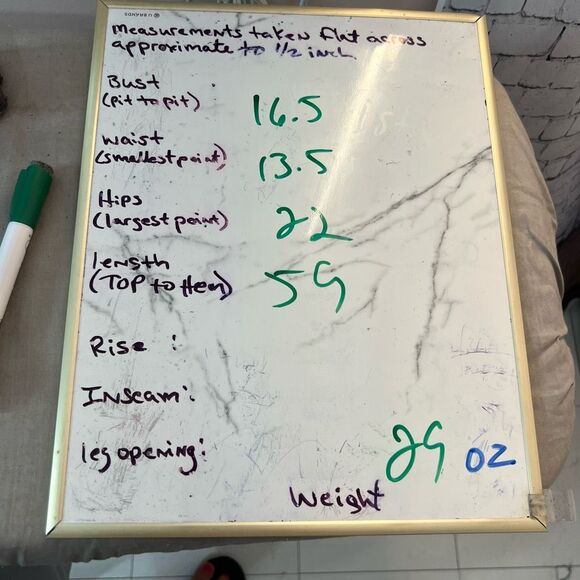 U BRANDS
measurements taken flat across
approximate to 1/2 inch
Bust
(pit to pit)
16.5
waist
(smallest point)
13.5
Hips
(largest point)
22
length
(TOP to Hem)
59
Rise :
Inseam:
leg opening:
29 oz
Weight